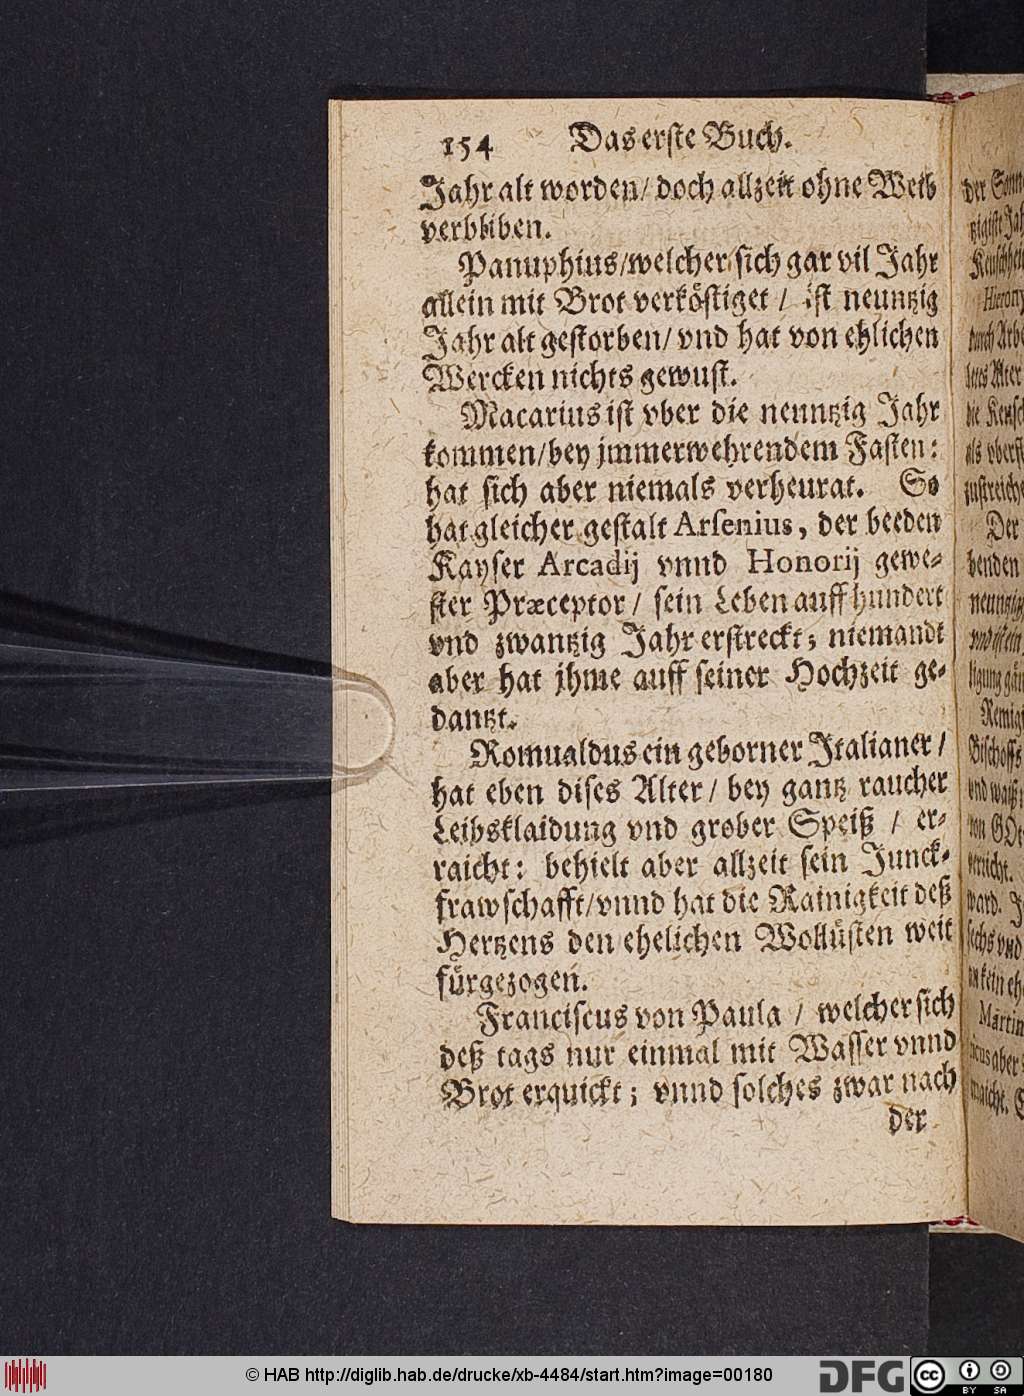 154 Das erste Buch.
Jahr alt worden / doch allzeit ohne Weib
verbliben.
Panuphius / welcher sich gar vil Jahr
allein mit Brot verköstiget / ist neuntzig
Jahr alt gestorben / vnd hat von ehlichen
Wercken nichts gewust.
Macarius ist vber die neuntzig Jahr
kommen / bey jmmerwehrendem Fasten:
hat sich aber niemals verheurat. So
hat gleicher gestalt Arsenius, der beeden
Kayser Arcadij vnnd Honorij gewe-
ster Præceptor / sein Leben auff hundert
vnd zwantzig Jahr erstreckt; niemandt
aber hat jhme auff seiner Hochzeit ge-
dantzt.
Romualdus ein geborner Italianer /
hat eben dises Alter / bey gantz raucher
Leibsklaidung vnd grober Speiß / er-
raicht: behielt aber allzeit sein Junck-
frawschafft / vnnd hat die Rainigkeit deß
Hertzens den ehelichen Wollüsten weit
fürgezogen.
Franciscus von Paula / welcher sich
deß tags nur einmal mit Wasser vnnd
Brot erquickt; vnnd solches zwar nach
der
der
Der
benden
© HAB http://diglib.hab.de/drucke/xb-4484/start.htm?image=00180
DFG
cc
BY SA